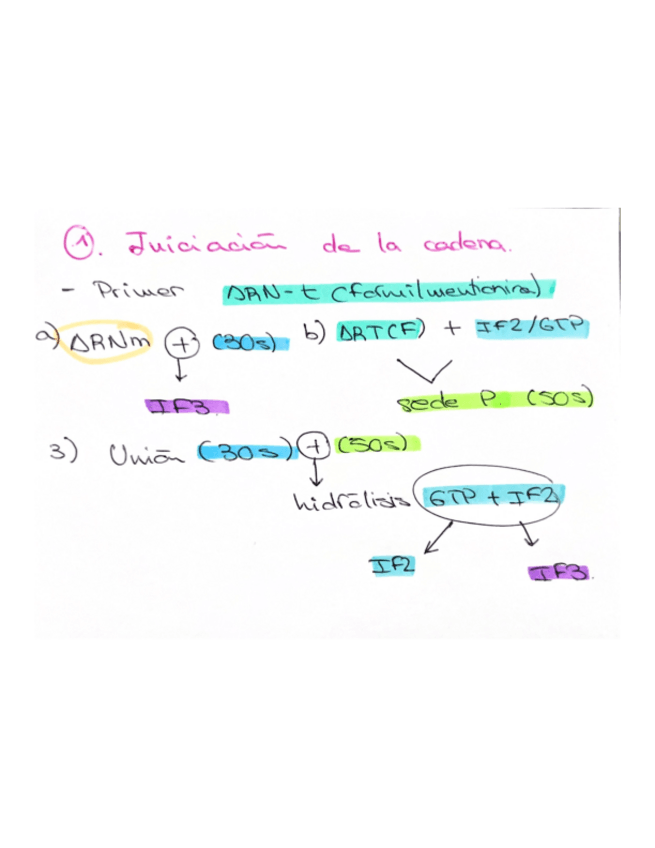 1. Iniciación de la cadena.
- Primer ARN-t (formilmentionina)
a) ARNm + (30s) b) ART(F) + IF2/GTP
IF3 sede P. (50s)
3) Unión (30s) + (50s)
hidrólisis GTP + IF2
IF2 IF3.